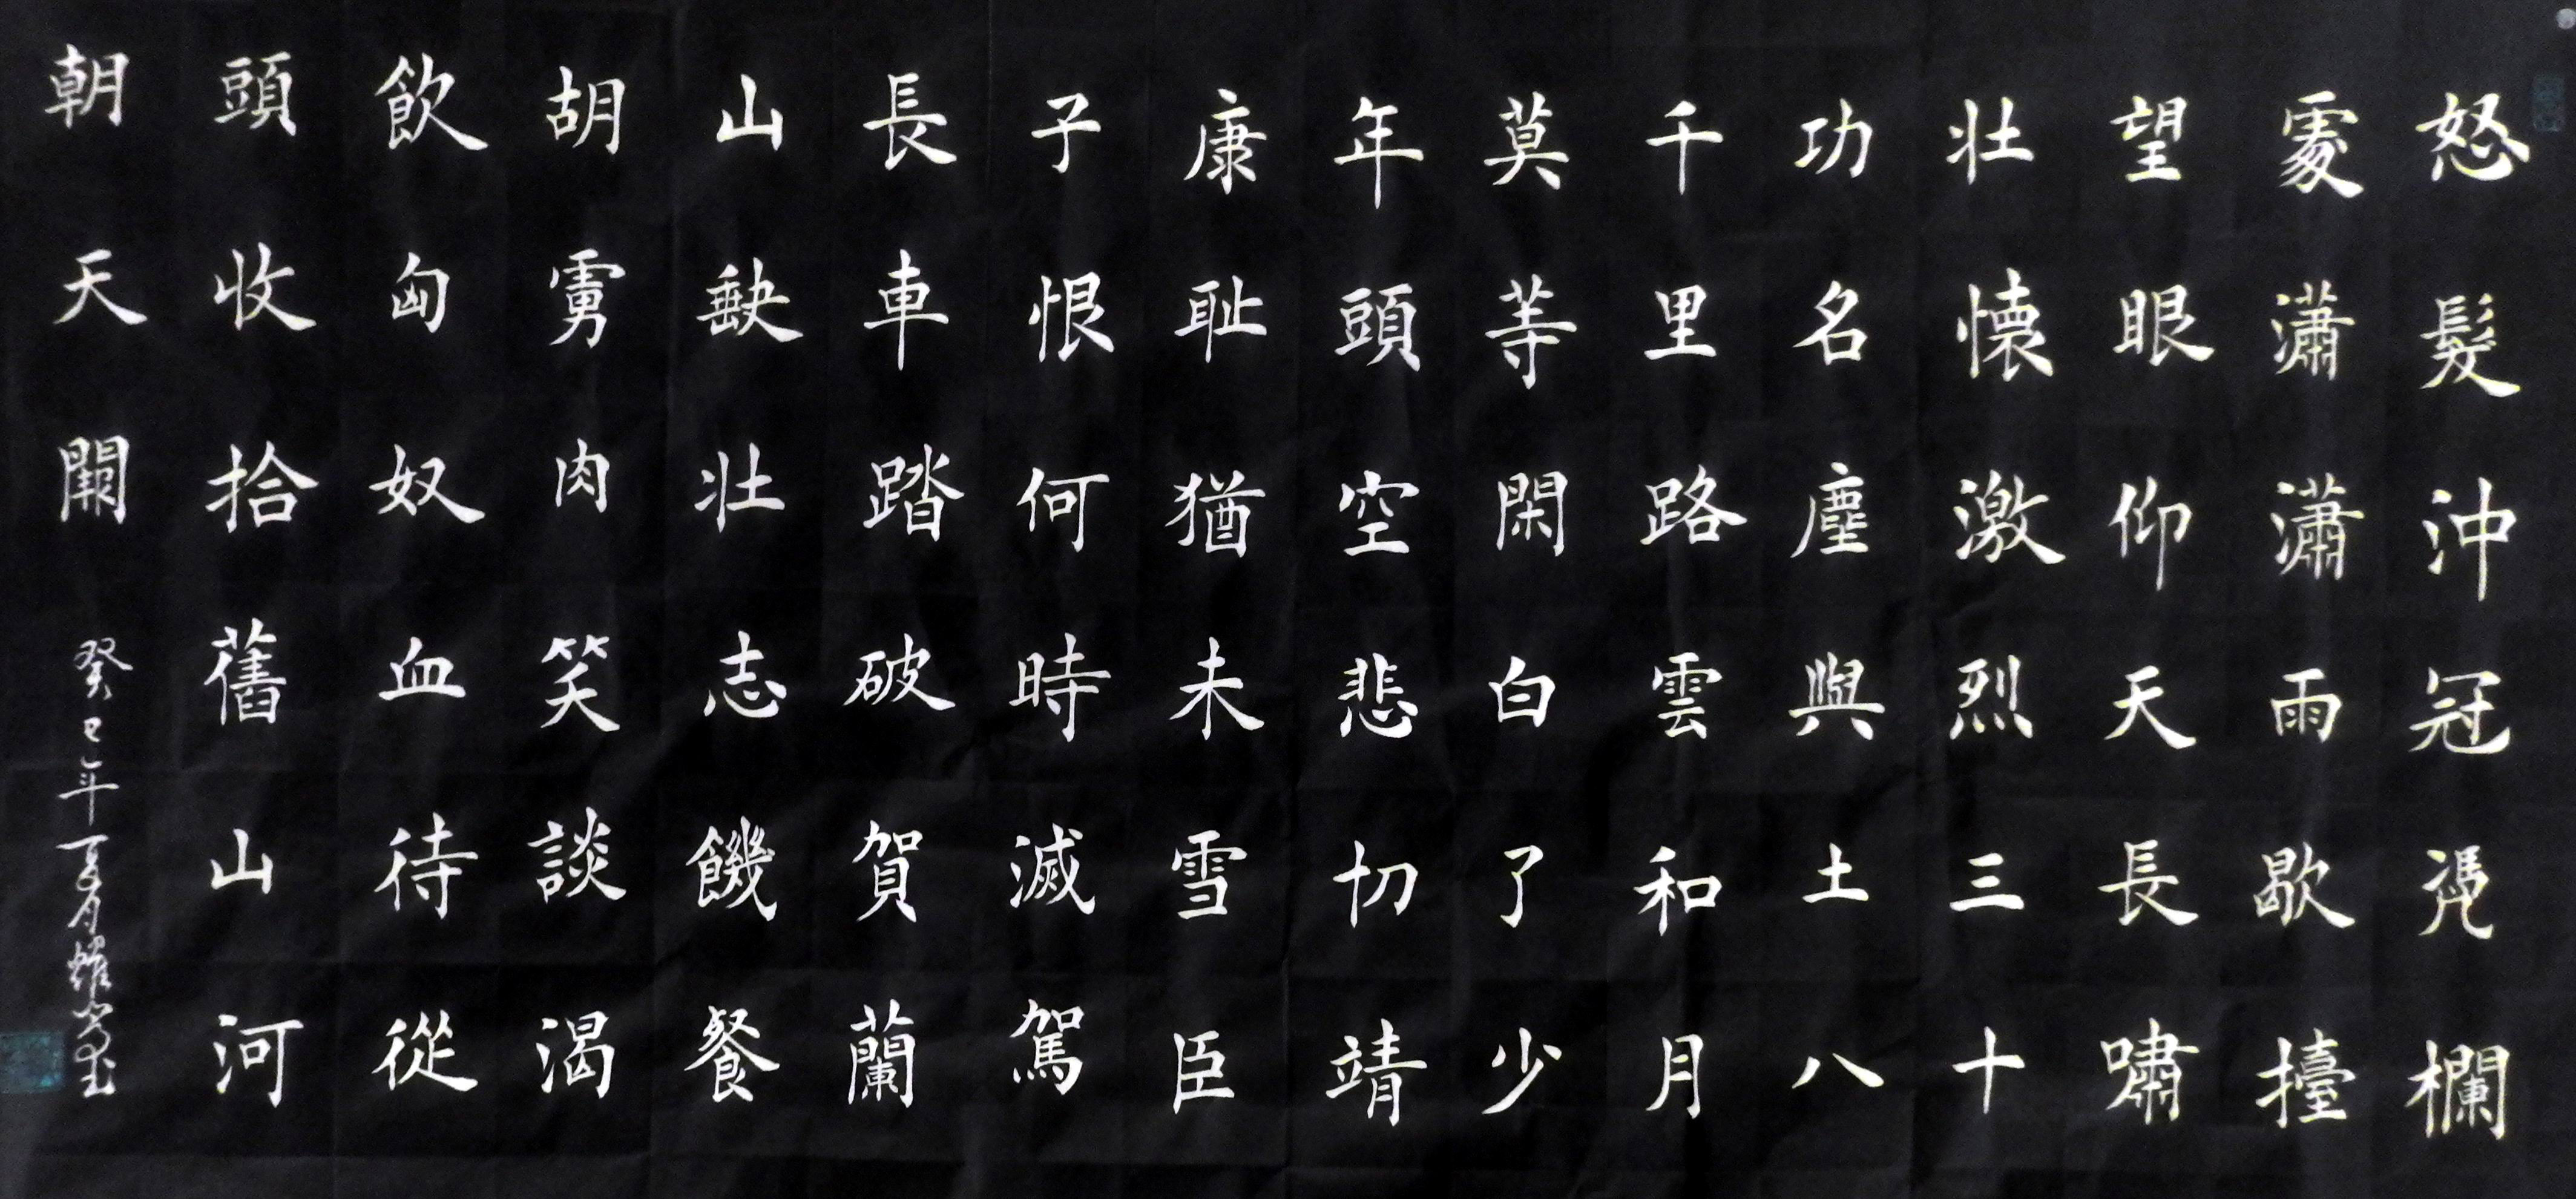 怒髮沖冠凴欄
處瀟瀟雨歇擡
望眼仰天長嘯
壯懷激烈三十
功名塵與土八
千里路雲和月
莫等閑白了少
年頭空悲切靖
康耻猶未雪臣
子恨何時滅駕
長車踏破賀蘭
山缺壯志饑餐
胡虜肉笑談渴
飲匈奴血待從
頭收拾舊山河
朝天闕
癸巳年夏月